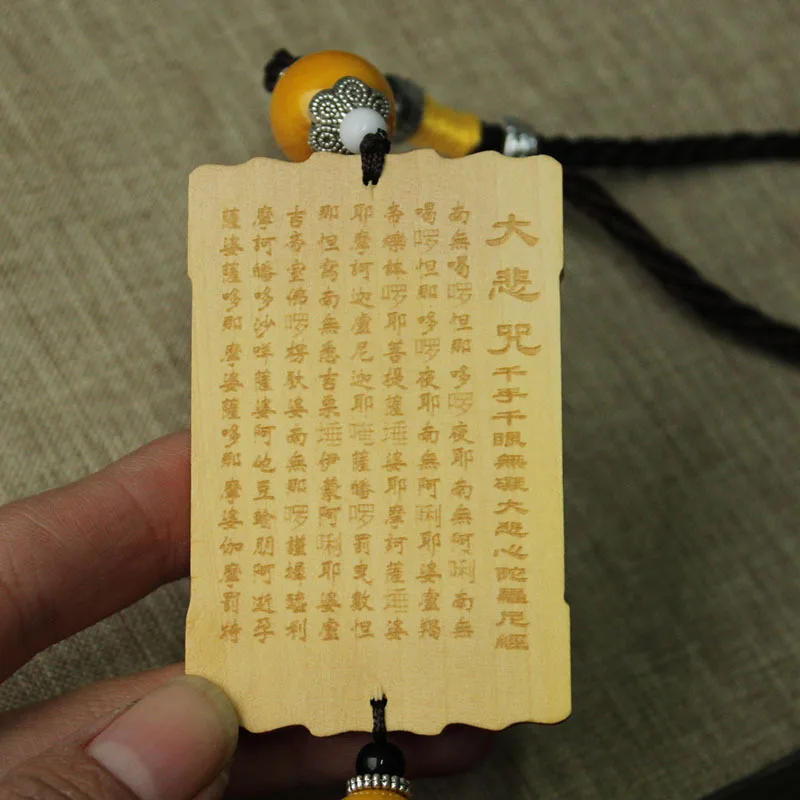 大悲咒千手千眼無礙大悲心陀羅尼經
南無喝啰怛那哆啰夜耶南無阿唎南無
喝啰怛那哆啰夜耶南無阿唎耶婆盧羯
帝爍鉢啰耶菩提薩埵婆耶摩訶薩埵婆
耶摩訶迦盧尼迦耶唵薩皤啰罰曳數怛
那怛寫南無悉吉栗埵伊蒙阿唎耶婆盧
吉帝室佛啰楞馱婆南無那啰謹墀利
摩訶皤哆沙咩薩婆阿他豆輸朋阿逝孕
薩婆薩哆那摩婆薩哆那摩婆伽摩罰特